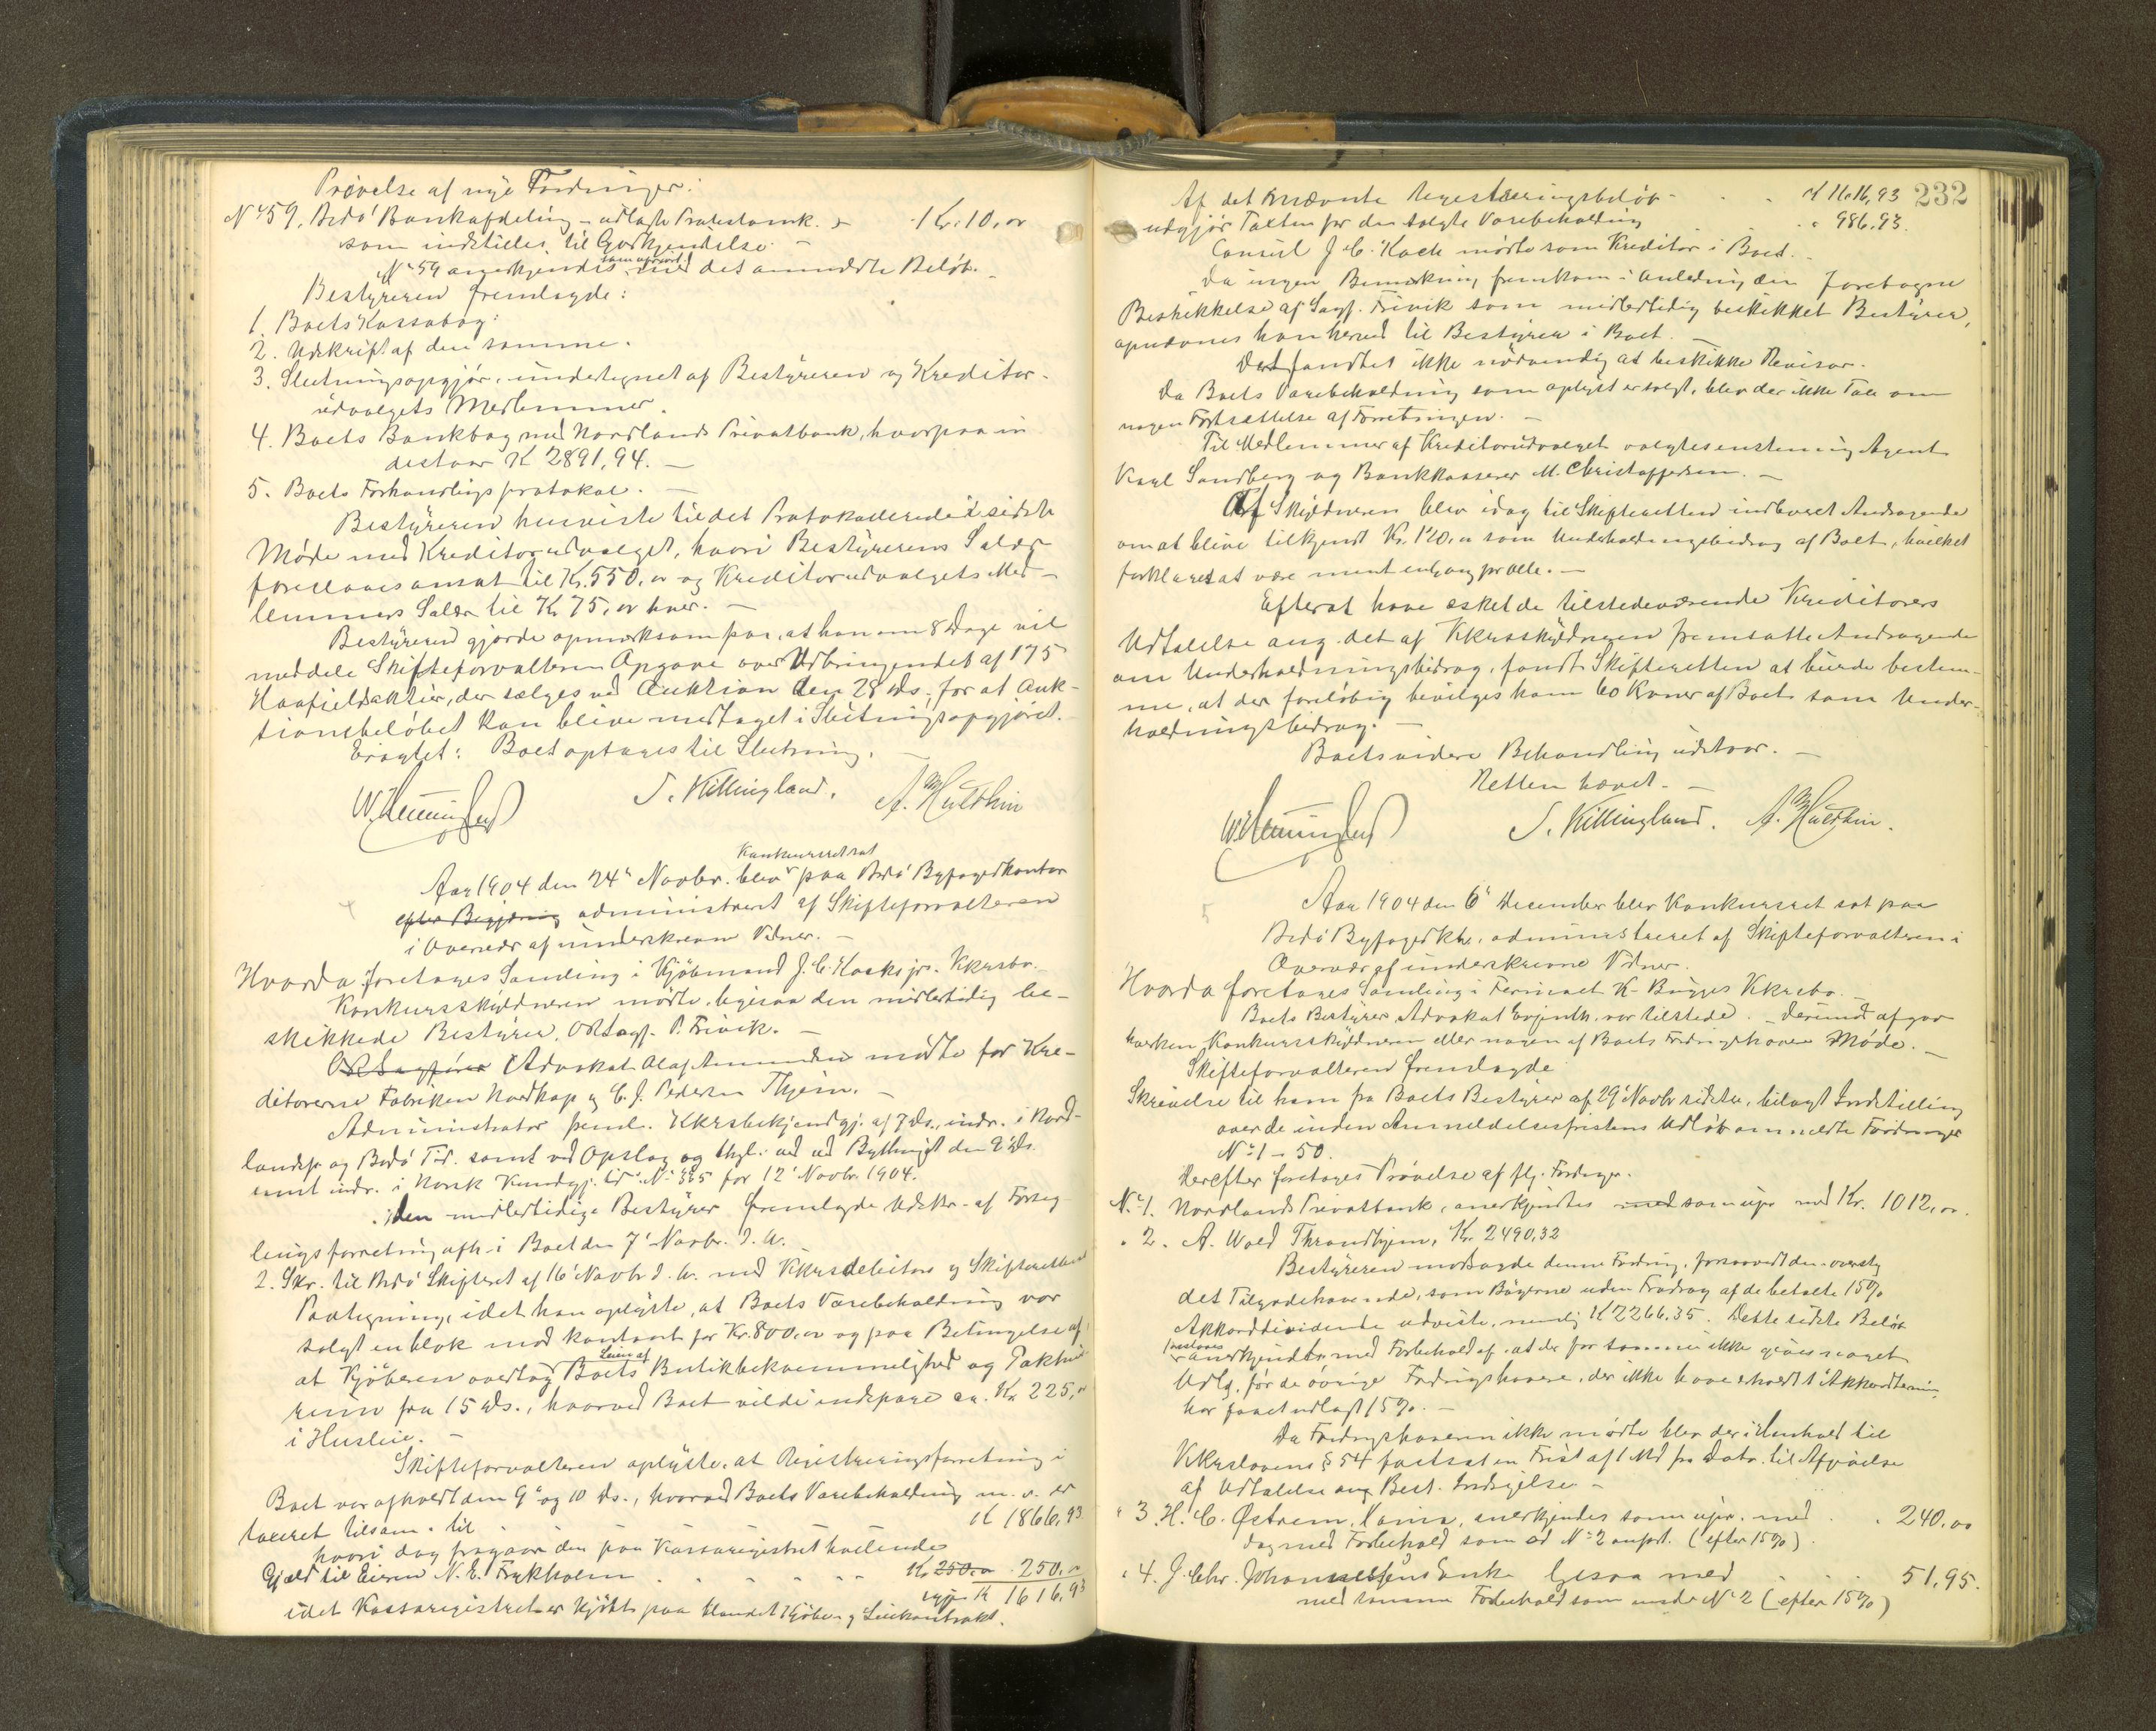 Prøvelse af nye Fordringer:
No 59. Bodø Bankafdeling - udlagte Protestomk. Kr. 10,00
som indstilles til Godkjendelse. -
No 59 anerkjendes som uprior. med det anmeldte Beløb. -
Bestyreren fremlagde:
1. Boets Kassabog.
2. Udskrift af den samme.
3. Slutningsopgjør, undertegnet af Bestyreren og Kreditor-
udvalgets Medlemmer.
4. Boets Bankbog med Nordlands Privatbank, hvorpaa in
destaar K 2891,94. -
5. Boets Forhandlingsprotokol. -
Bestyreren henviste til det Protokollerede i sidste
Møde med Kreditorudvalget, hvori Bestyrerens Salær
foreslaaes ansat til Kr. 550,00 og Kreditorudvalgets Med-
lemmers Salær til Kr 75,00 hver. -
Bestyreren gjorde opmærksom paa, at han om 8 Dage vil
meddele Skifteforvalteren Opgave over Udbringendet af 175
aktier, der sælges ved Auktion den 28 ds., for at Auk-
tionsbeløbet kan blive medtaget i Slutningsopgjøret.
Eragtet: Boet optages til Slutning. -
S. Killingland. A. M. Hulthin
Aar 1904 den 24' Novbr. blev Konkursret sat paa Bodø Byfogedkontor
efter Begjæring administreret af Skifteforvalteren
i Overvær af underskrevne Vidner. -
Hvorda foretages Samling i Kjøbmand J. C. Kochs jr. Kkrsbo.
Konkursskyldneren mødte, ligesaa den midlertidig be-
skikkede Bestyrer, ORSagf. P. Trivik. -
ORSagfører Advokat Olaf Amundsen mødte for Kre-
ditorerne Fabriken Nordkap og C. J. Pedersen Thjem. -
Administrator freml. Kkrsbekjendtgj. af 7 ds., indr. i Nord-
landsp. og Bodø Tid. samt ved Opslag og thgl. ved Bythinget den 9' ds.
samt indr. i Norsk Kundgj. Tid. No 335 for 12' Novbr. 1904.
1. den midlertidige Bestyrer fremlagde Udskr. af Forseg-
lingsforretning afh. i Boet den 7' Novbr. d. A.
2. Skr. til Bodø Skifteret af 16' Novbr d. A. med Kkrsdebitors og Skifterettens
Paategning, idet han oplyste, at Boets Varebeholdning var
solgt en blok mod kontant for Kr. 800,00 og paa Betingelse af,
at Kjøberen overtog Leien af Boets Butikbekvemmelighed og Pakhus-
rum fra 15 ds., hvorved Boet vilde indspare ca. Kr. 225,00
i Husleie. -
Skifteforvalteren oplyste, at Registreringsforretning i
Boet var afholdt den 9' og 10 ds., hvorved Boets Varebeholdning m. v. er
taxeret tilsam. til K 1866,93
hvori dog fragaar den paa Kassaregistret heftende
Gjæld til Eieren N. E. Frykholm Kr 250,00 250,00
K 1616,93
idet Kassaregistret er kjøbt paa Leiekontrakt.
232
Af det omnævnte Registreringsbeløb - K 1616,93
udgjør Taxten for den solgte Varebeholdning " 986,93.
Consul J. C. Koch mødte som Kreditor i Boet. -
Da ingen Bemærkning fremkom i Anledning den foretagne
Beskikkelse af Sagf. Trivik som midlertidig beskikket Bestyrer,
opnævnes han herved til Bestyrer i Boet.
Det fandtes ikke nødvendig at beskikke Revisor.
Da Boets Varebeholdning som oplyst er solgt, blev der ikke Tale om
nogen Fortsættelse af Forretningen. -
Til Medlemmer af Kreditorudvalget valgtes enstemmig Agent
Karl Sandberg og Bankkasserer M. Christoffersen. -
Af Skyldneren blev idag til Skifteretten indleveret Andragende
om at blive tilkjendt Kr. 120,00 som Underholdningsbidrag af Boet, hvilket
forklaredes at være ment engang for alle. -
Efterat have æsket de tilstedeværende Kreditorers
Udtalelse ang. det af Kkrsskyldneren fremsatte Andragende
om Underholdningsbidrag, fandt Skifteretten at burde bestem-
me, at der foreløbig bevilges ham 60 Kroner af Boet som Under-
holdningsbidrag. -
Boets videre Behandling udstaar. -
Retten hævet. -
S. Killingland. A. M. Hulthin.
Aar 1904 den 6' December blev Konkursret sat paa
Bodø Byfogedktr., administreret af Skifteforvalteren i
Overvær af underskrevne Vidner.
Hvorda foretages Samling i Firmaet K. Bugges Kkrsbo. -
Boets Bestyrer Advokat var tilstede. - Derimod afgav
hverken Konkursskyldneren eller nogen af Boets Fordringshavere Møde. -
Skifteforvalteren fremlagde
Skrivelse til ham fra Boets Bestyrer af 29' Novbr sidstl., bilagt Indstilling
over de inden Anmeldelsesfristens Udløb anmeldte Fordringer
No 1 - 50.
Derefter foretages Prøvelse af flg. Fordringer.
No 1. Nordlands Privatbank, anerkjendtes med som upr med Kr. 1012,00.
" 2. A. Wold Throndhjem, Kr. 2490,32
Bestyreren modsagde denne Fordring, forsaavidt den oversteg
det Tilgodehavende, som Bøgerne uden Fradrag af de betalte 15%
Akkorddividende udviste, nemlig K 2266,35. Dette sidste Beløb
anerkjendtes med Forbehold af, at der for samme ikke gives noget
Udlg. før de øvrige Fordringshavere, der ikke have erholdt 1'
har faaet udlagt 15%. -
Da Fordringshaveren ikke mødte blev der i Henhold til
Kkrslovens § 54 fastsat en Frist af 1 Md fra Dato til Afgivelse
af Udtalelse ang Best. Indsigelse -
" 3. H. C. Østrem, anerkjendes som upr. med " 240,00
dog med Forbehold som ved No 2 anført. (efter 15%)
" 4. J. Chr. Johannessens Enke ligesaa med 51,95.
med samme Forbehold som under No 2 (efter 15%)